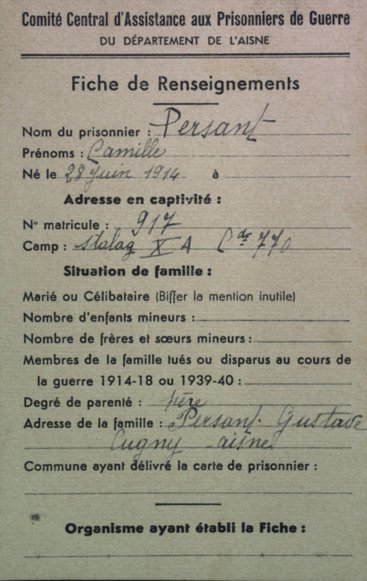 Comité Central d'Assistance aux Prisonniers de Guerre
DU DÉPARTEMENT DE L'AISNE
Fiche de Renseignements
Nom du prisonnier : Persant
Prénoms : Camille
Né le 28 juin 1914 à
Adresse en captivité :
N° matricule : 917
Camp : Stalag X A Cdo 770
Situation de famille :
Marié ou Célibataire (Biffer la mention inutile)
Nombre d'enfants mineurs :
Nombre de frères et sœurs mineurs :
Membres de la famille tués ou disparus au cours de
la guerre 1914-18 ou 1939-40 :
Degré de parenté : père
Adresse de la famille : Persant Gustave
Cugny aisne
Commune ayant délivré la carte de prisonnier :
Organisme ayant établi la Fiche :